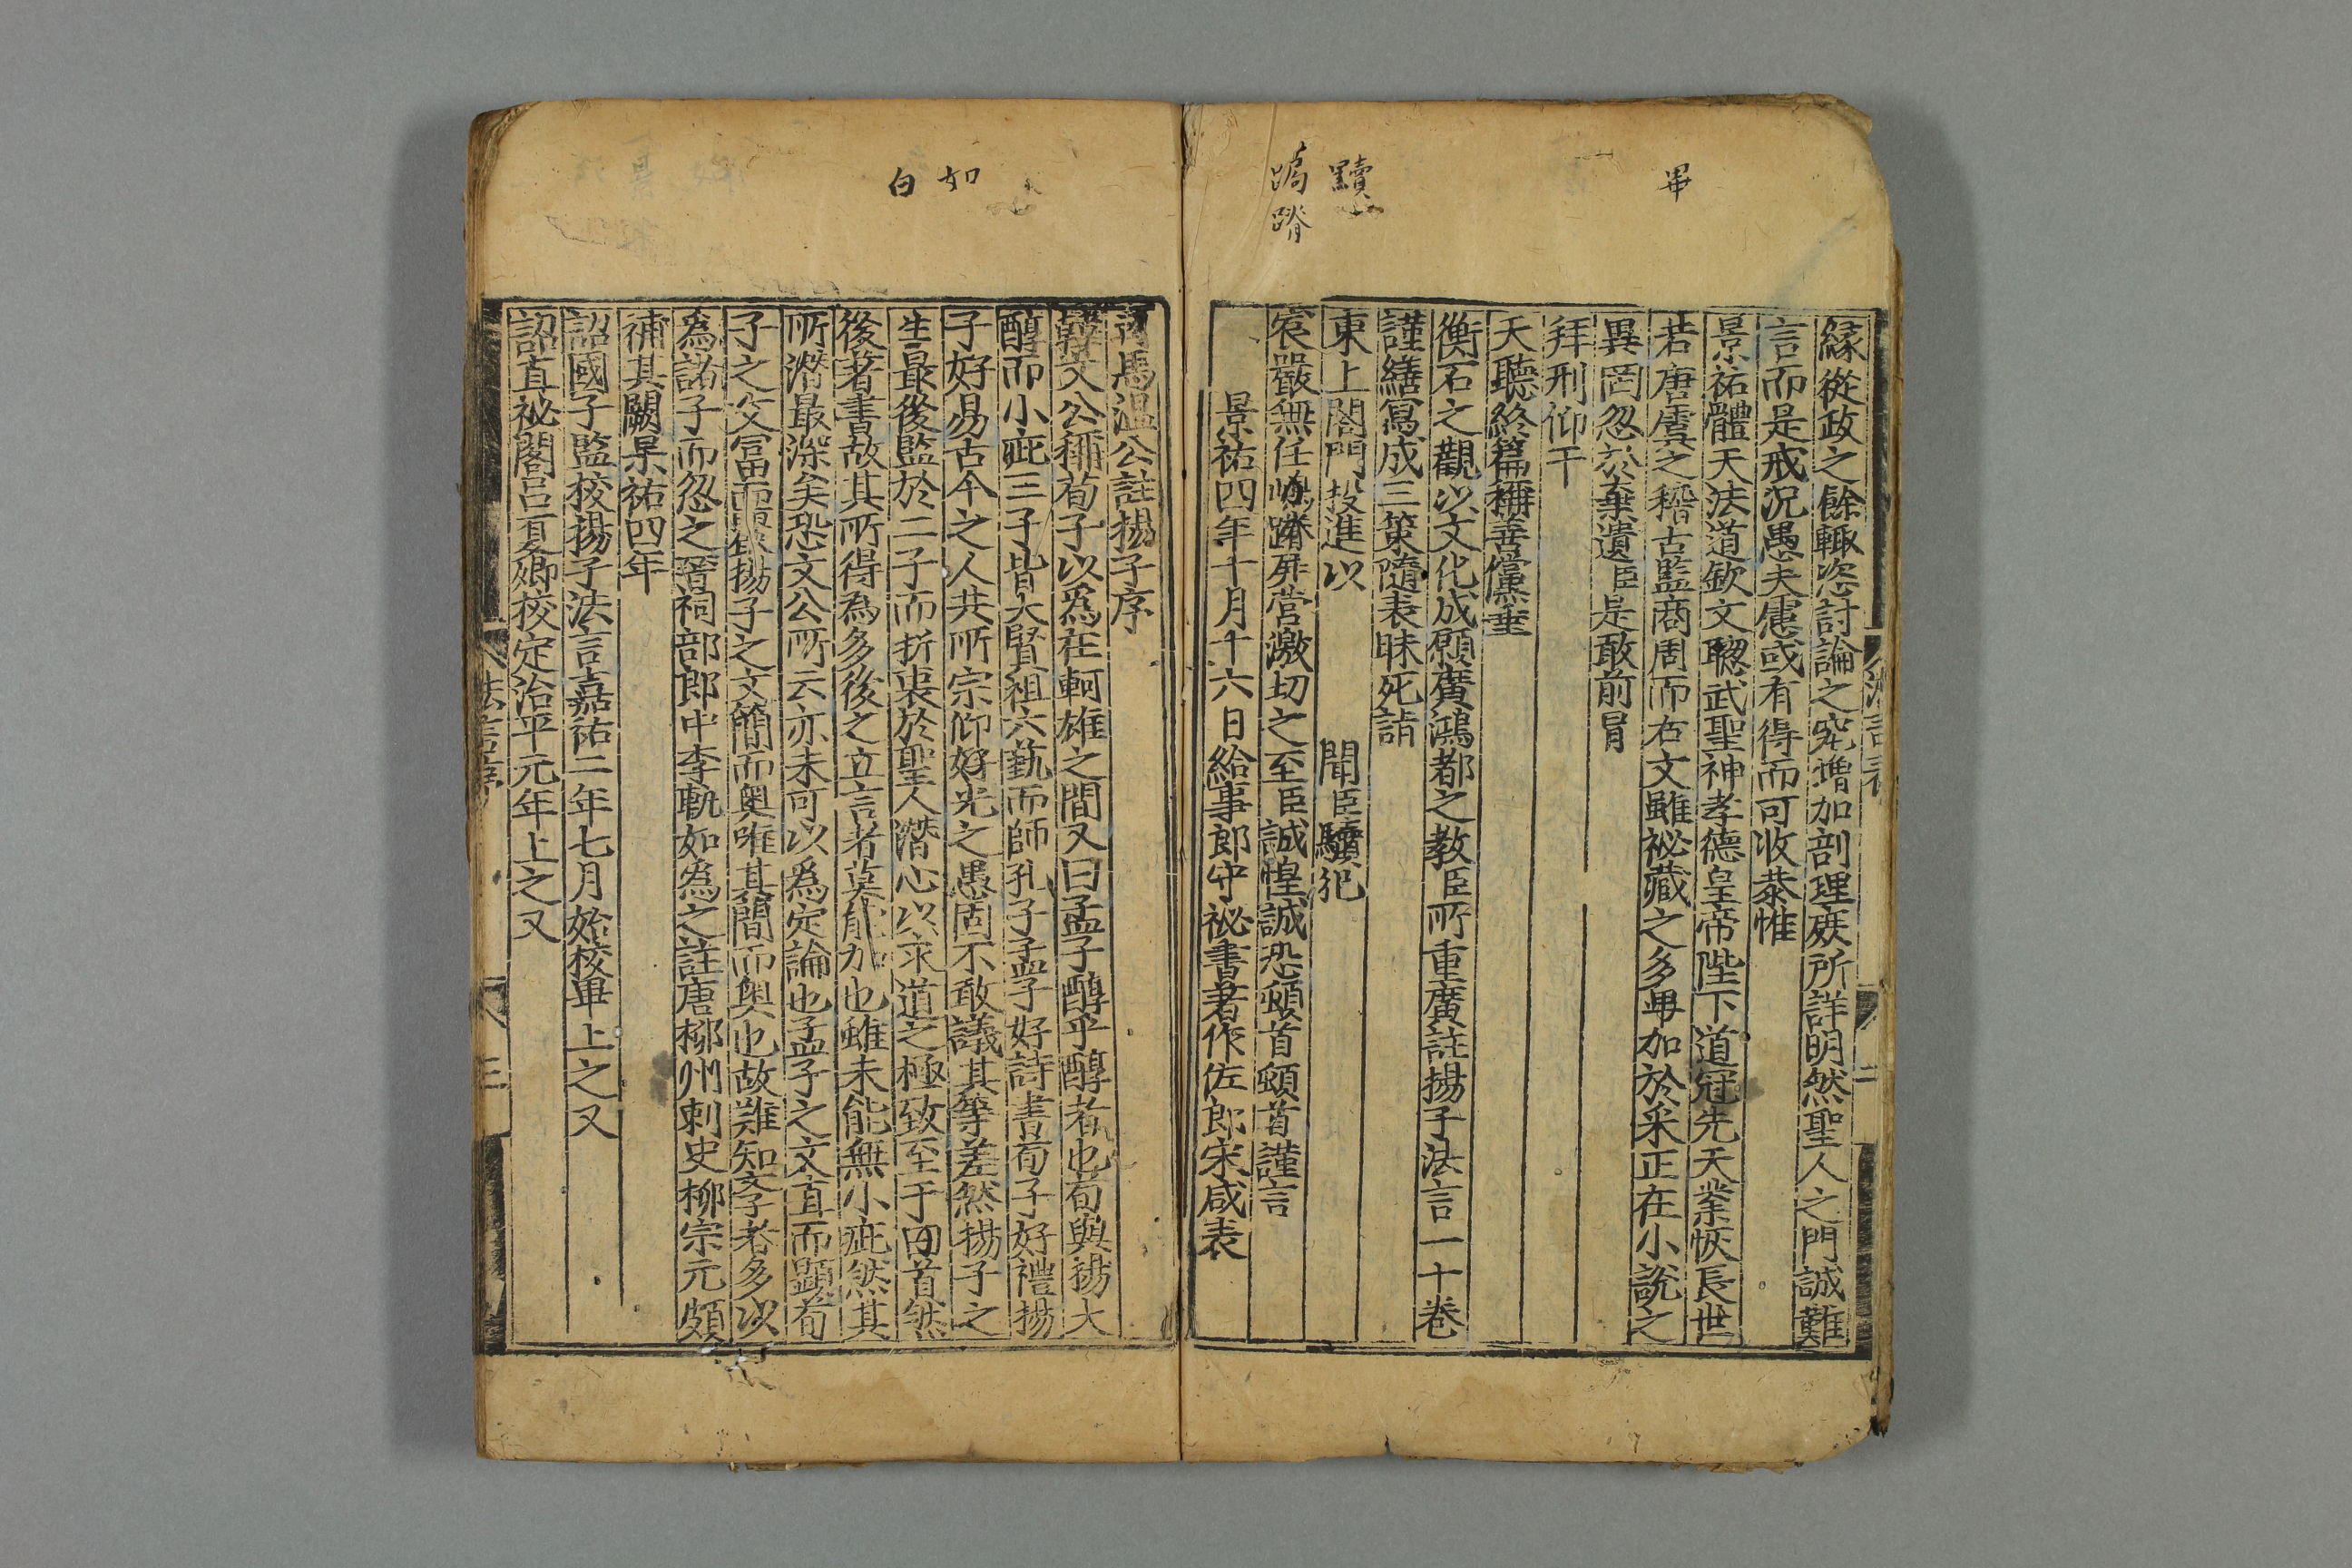 畢
黷
跼
蹐
緣從政之餘輙恣討論之究增加剖理庻所詳明然聖人之門誠難
言而是戒況愚夫慮或有得而可收恭惟
景祐體天法道欽文聦武聖神孝德皇帝陛下道冠先天業恢長世
若唐虞之稽古監商周而右文雖祕藏之多毋加於采正在小說之
異罔忽於棄遺臣是敢前冒
拜刑仰干
天聽終篇稱善儻垂
衡石之觀以文化成願廣鴻都之教臣所重廣註揚子法言一十卷
謹繕寫成三策隨表昧死詣
東上閤門投進以聞臣黷犯
宸嚴無任屏營激切之至臣誠惶誠恐頓首頓首謹言
景祐四年十月十六日給事郎守祕書著作佐郎宋咸表
如
白
司馬溫公註揚子序
韓文公稱荀子以爲在軻雄之間又曰孟子醇乎醇者也荀與揚大
醇而小疵三子皆大賢祖六藝而師孔子孟子好詩書荀子好禮揚
子好易古今之人共所宗仰如光之愚固不敢議其等差然揚子之
生最後監於二子而折衷於聖人潛心以求道之極致至于白首然
後著書故其所得爲多後之立言者莫能加也雖未能無小疵然其
所潛最深矣恐文公所云亦未可以爲定論也孟子之文直而顯荀
子之文富而麗揚子之文簡而奧唯其簡而奥也故難知學者多以
爲諸子而忽之晉祠部郎中李軌始爲之註唐柳州刺史柳宗元頗
補其闕景祐四年
詔國子監校揚子法言嘉祐二年七月始校畢上之又
詔直祕閣呂夏卿校定治平元年上之又
法言序
三